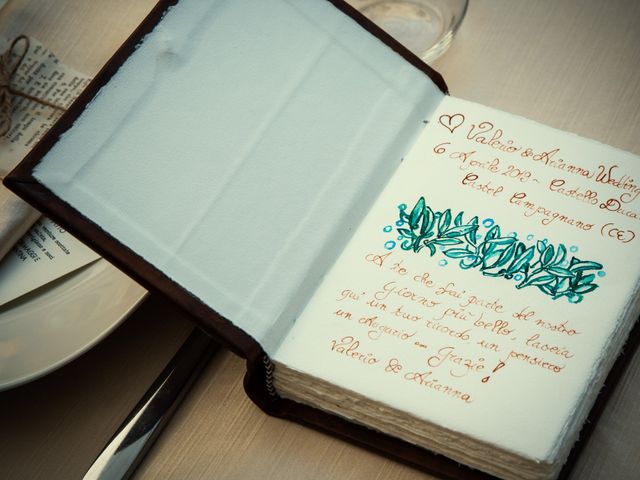 Valerio & Arianna Wedding
6 Aprile 2013 ~ Castello Ducale
Castel Campagnano (CE)
A te che fai parte del nostro
Giorno più bello, lascia
qui un tuo ricordo un pensiero
un Augurio ... Grazie!
Valerio & Arianna